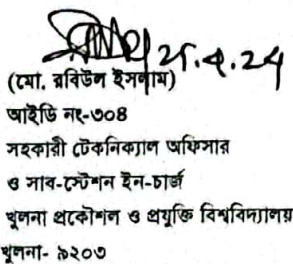 ২৮.৪.২৪
(মো. রবিউল ইসলাম)
আইডি নং-৩০৪
সহকারী টেকনিক্যাল অফিসার
ও সাব-স্টেশন ইন-চার্জ
খুলনা প্রকৌশল ও প্রযুক্তি বিশ্ববিদ্যালয়
খুলনা- ৯২০৩